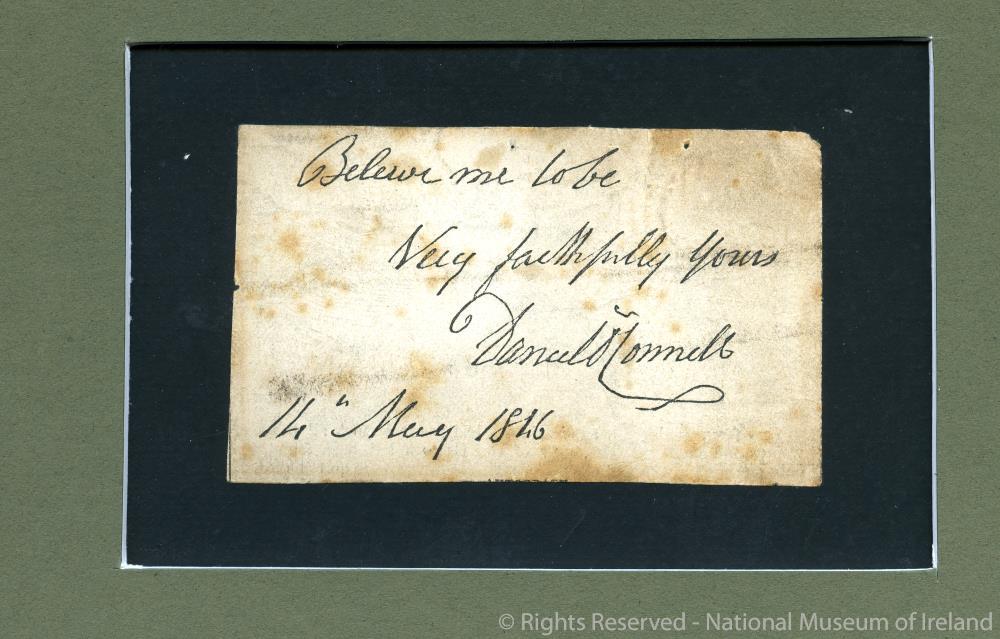 Believe me to be
Very faithfully yours
Daniel O'Connell
14" May 1846
© Rights Reserved - National Museum of Ireland